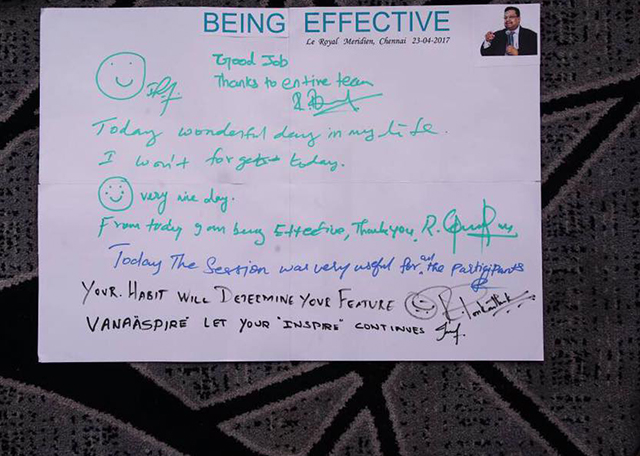 BEING EFFECTIVE
Le Royal Meridien, Chennai 23-04-2017
Good Job
Thanks to entire team
Today wonderful day in my life.
I won't forget today.
very nice day.
From today I am being Effective, Thank you. R.
Today The Session was very useful for all the partigipants
YOUR. HABIT WILL DETERMINE YOUR FEATURE
VANAASPIRE LET YOUR "INSPIRE" CONTINUES